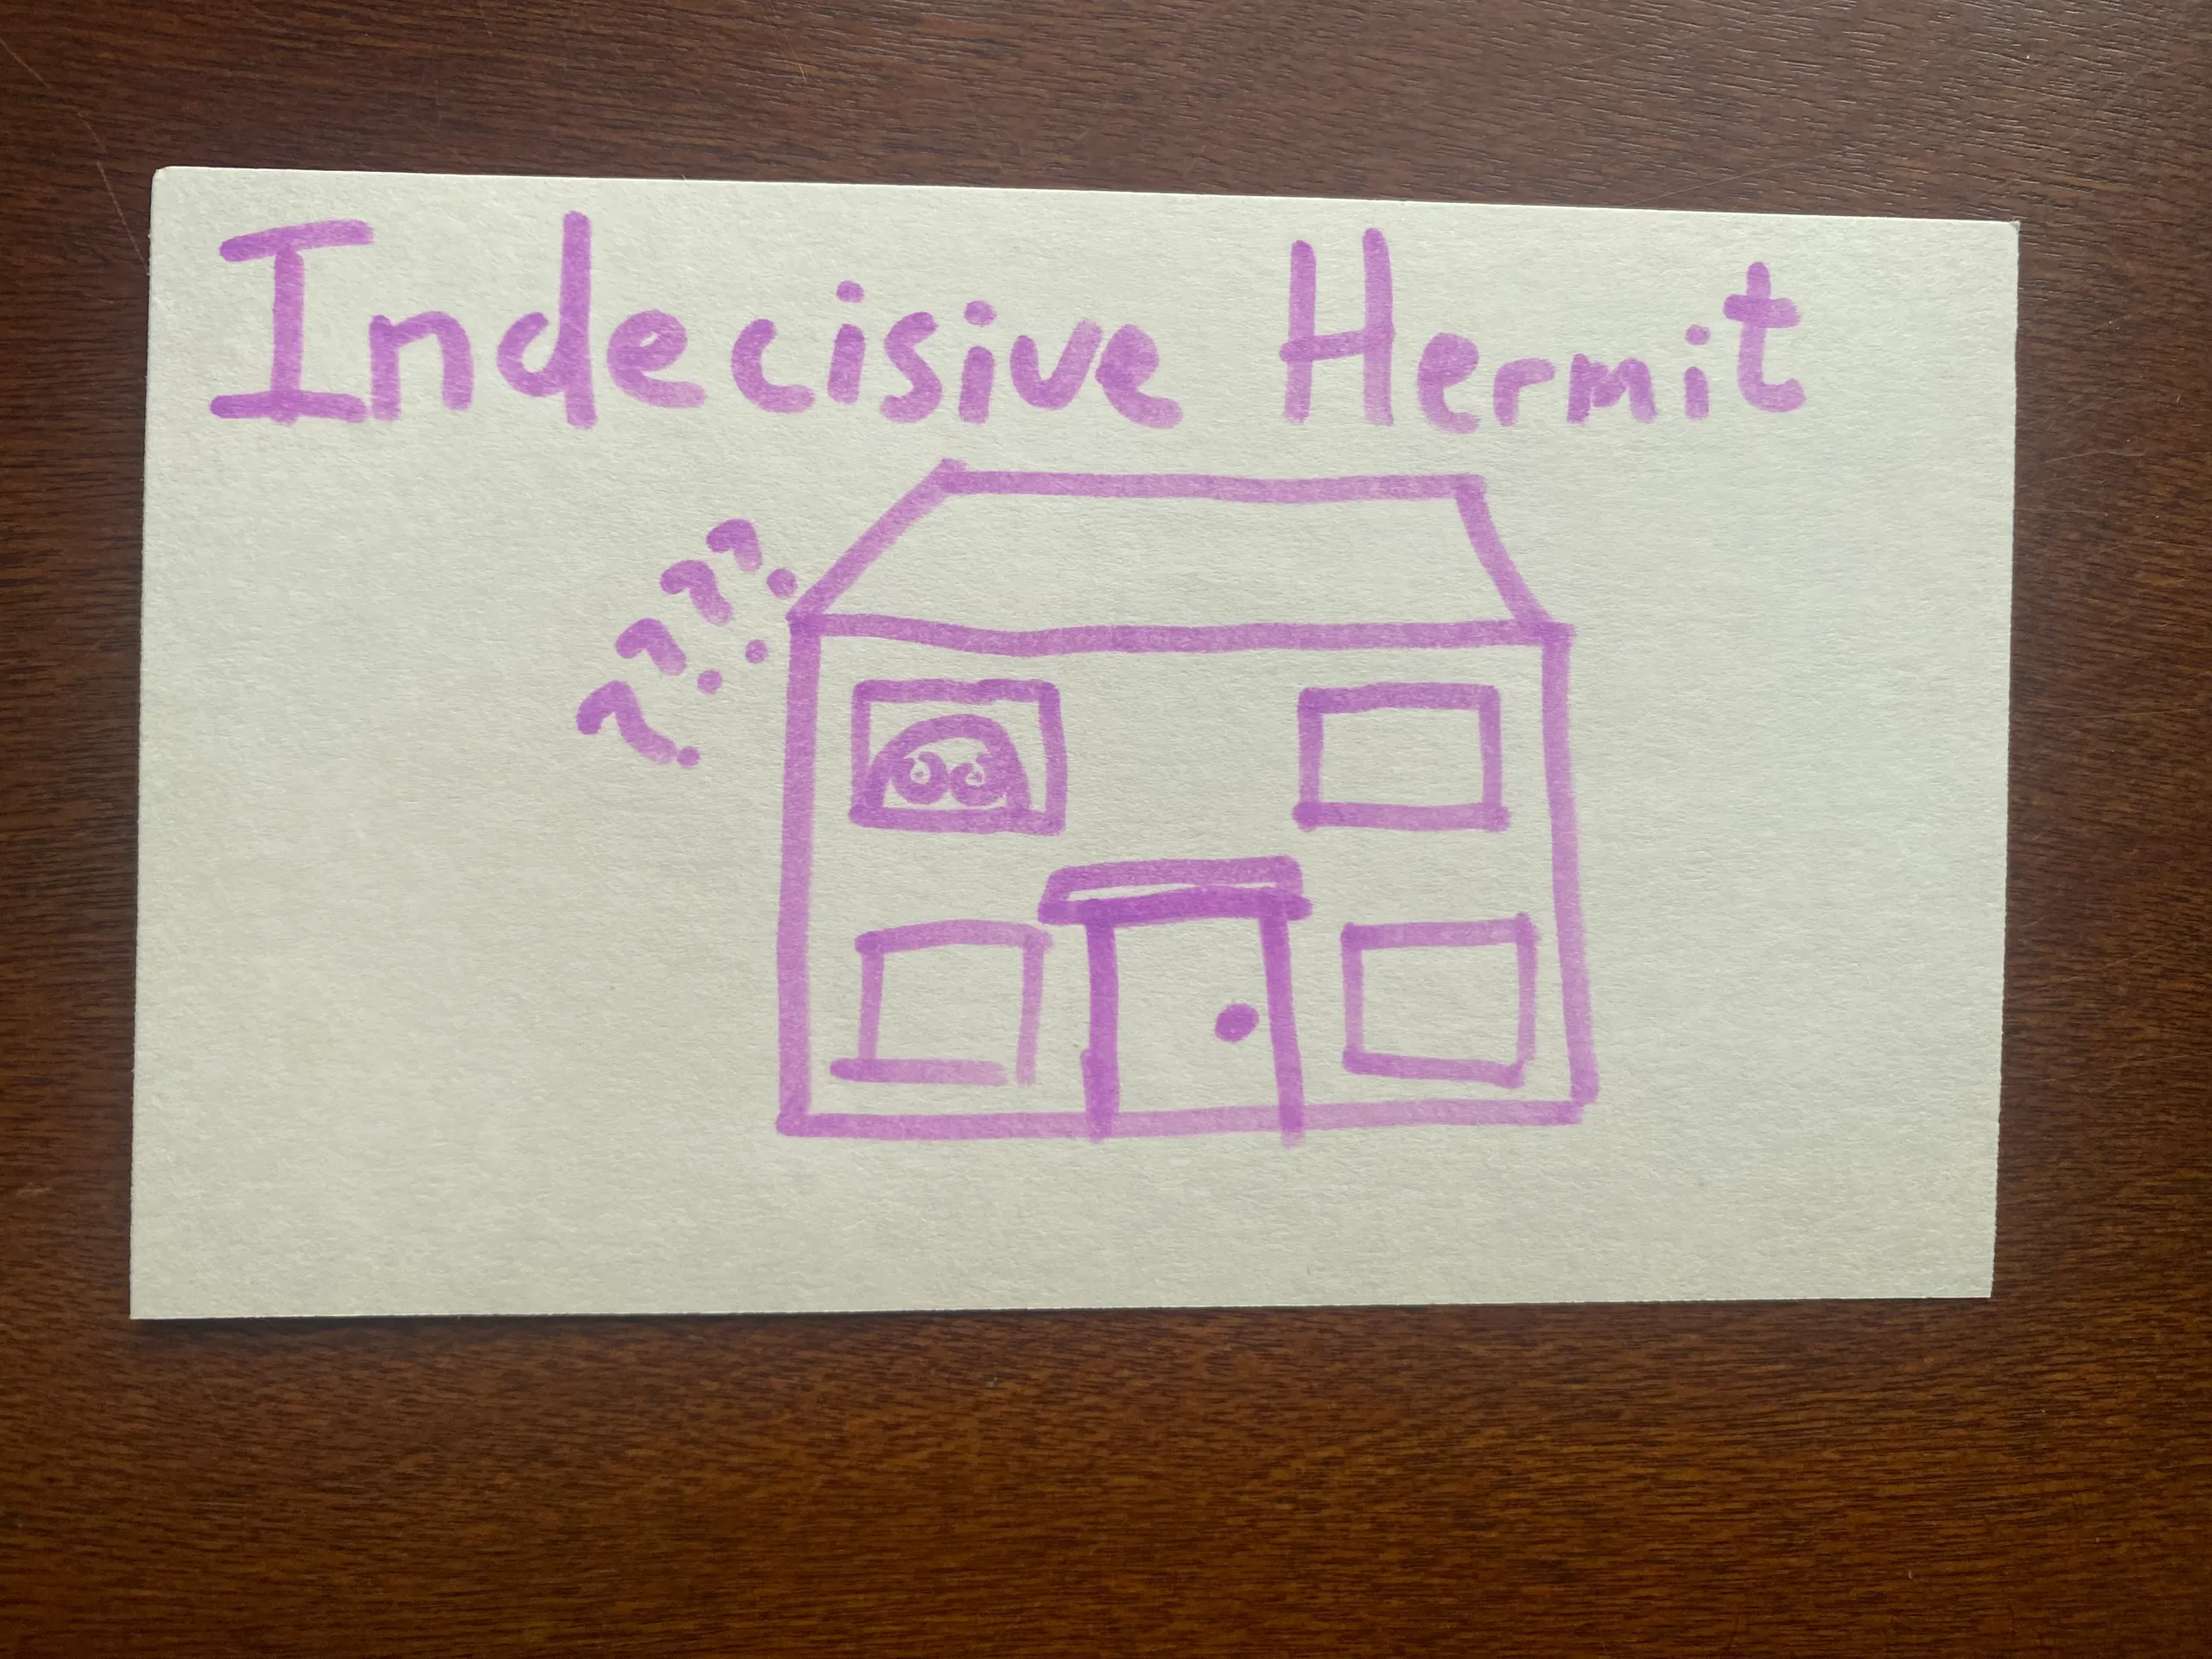 Indecisive Hermit
????